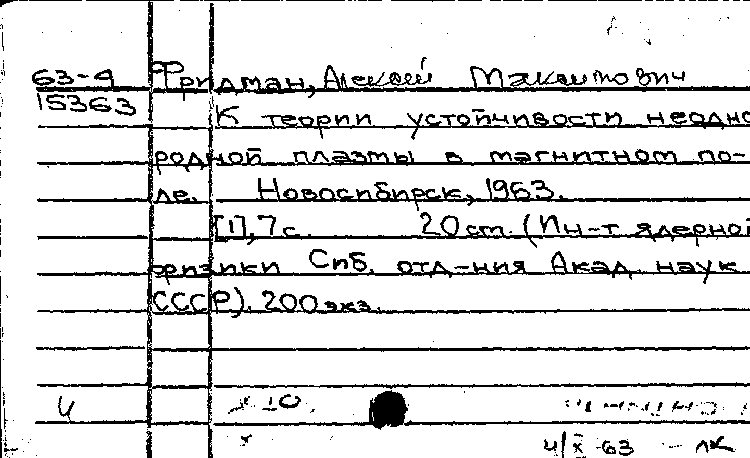 63-4 Фридман, Алексей Максимович
15363
К теории устойчивости неодно
родной плазмы в магнитном по-
ле. Новосибирск, 1963.
[1], 7 с. 20 см. (Ин-т ядерной
физики Сиб. отд-ния Акад. наук
СССР). 200 экз.
4/X-63 - ЛК